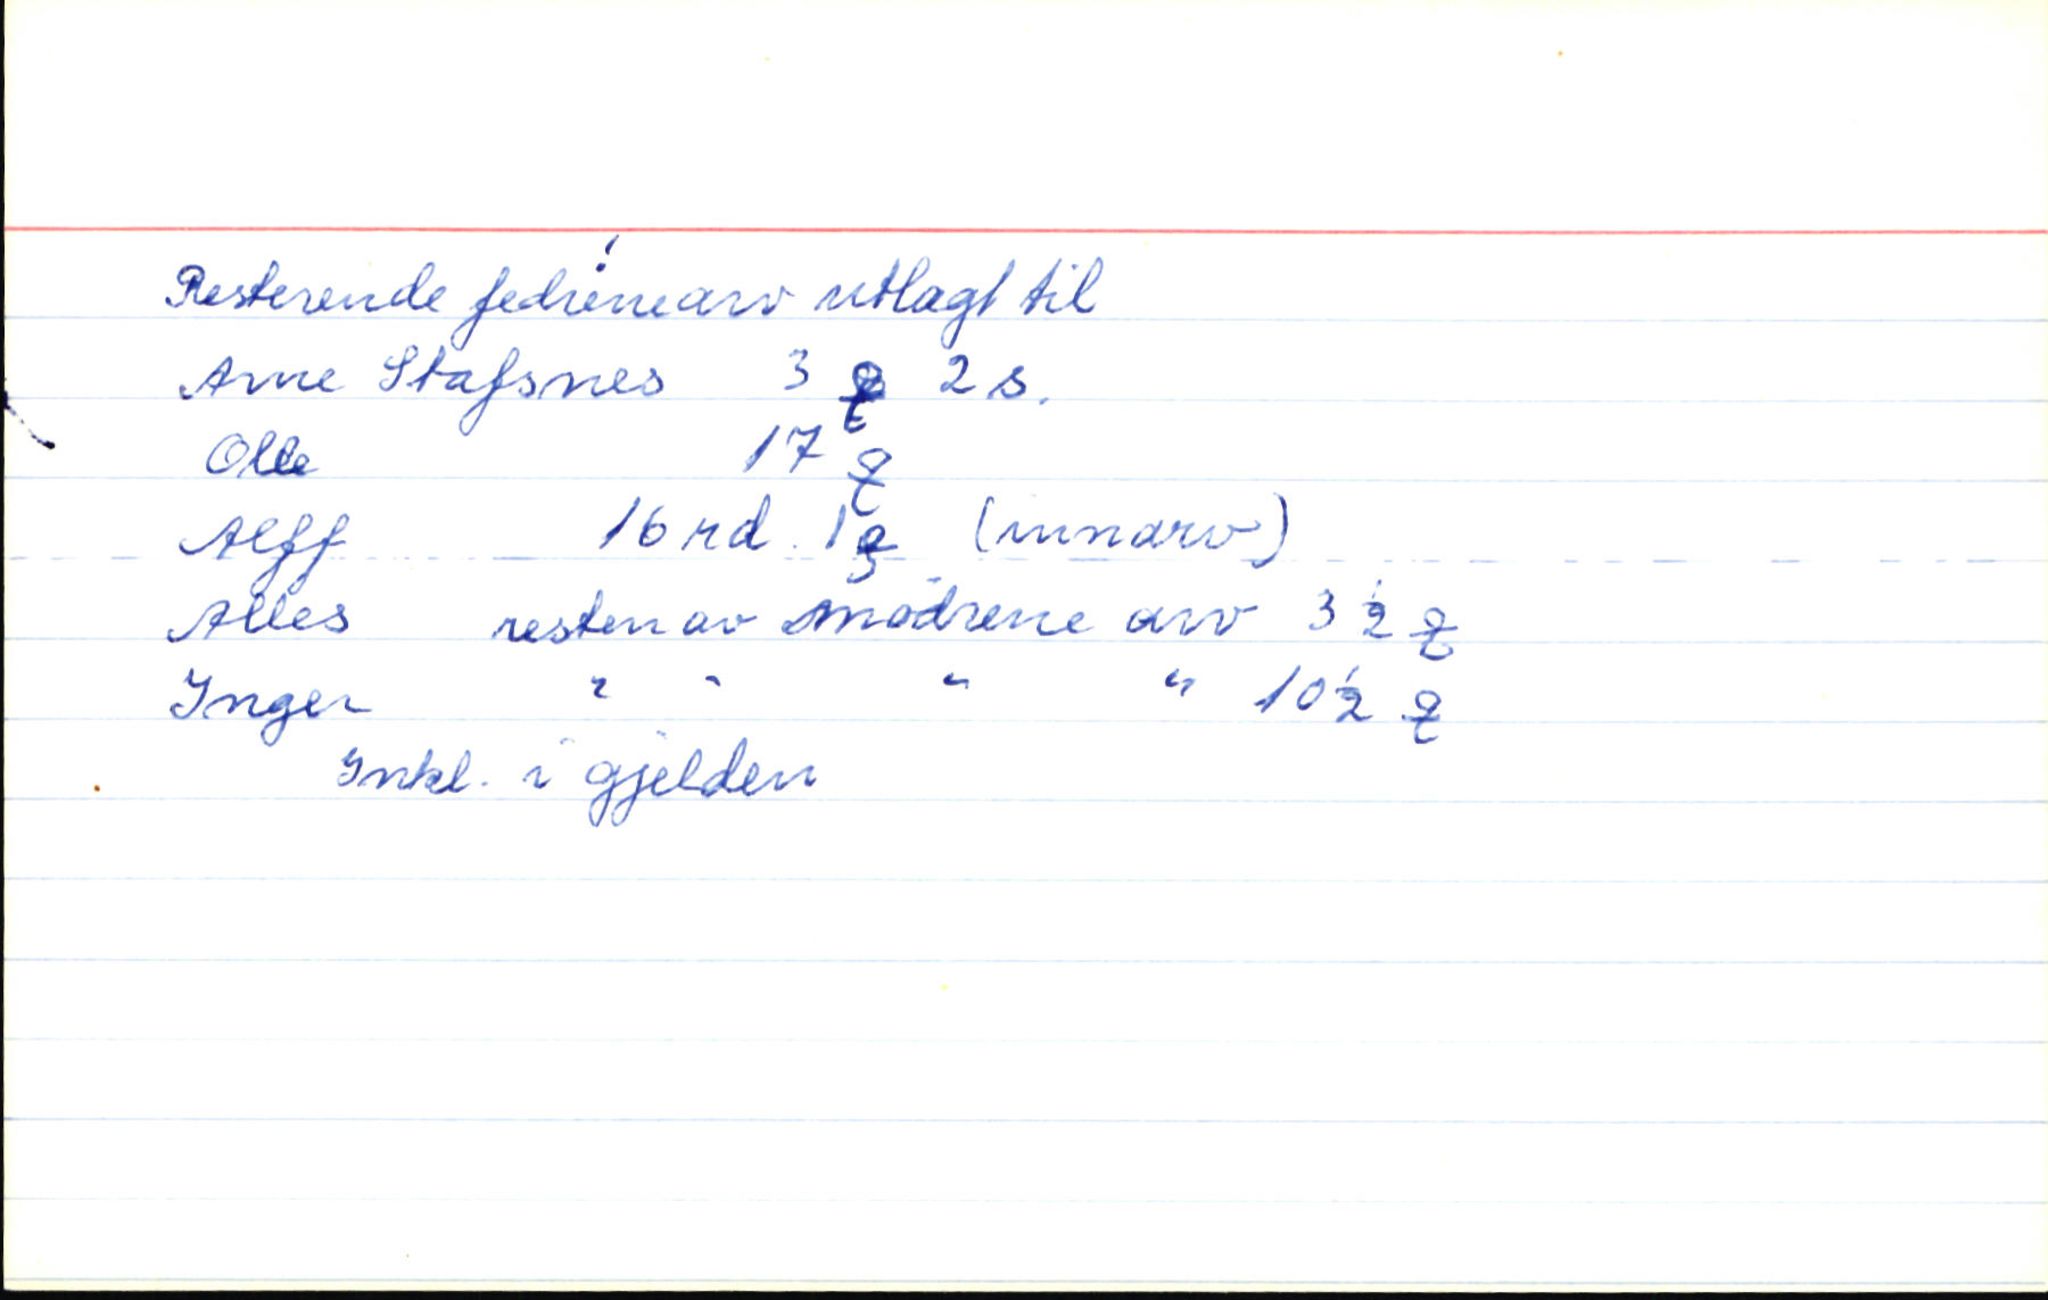 Resterende fedrenearv utlagt til
Arne Stafsnes 3 ꝗ 2 s.
Olle 17 ꝗ
Alff 16 rd. 1 ꝗ (innarv)
Alles resten av mødrene arv 3 ½ ꝗ
Inger " " " " 10 ½ ꝗ
Inkl. i gjelden